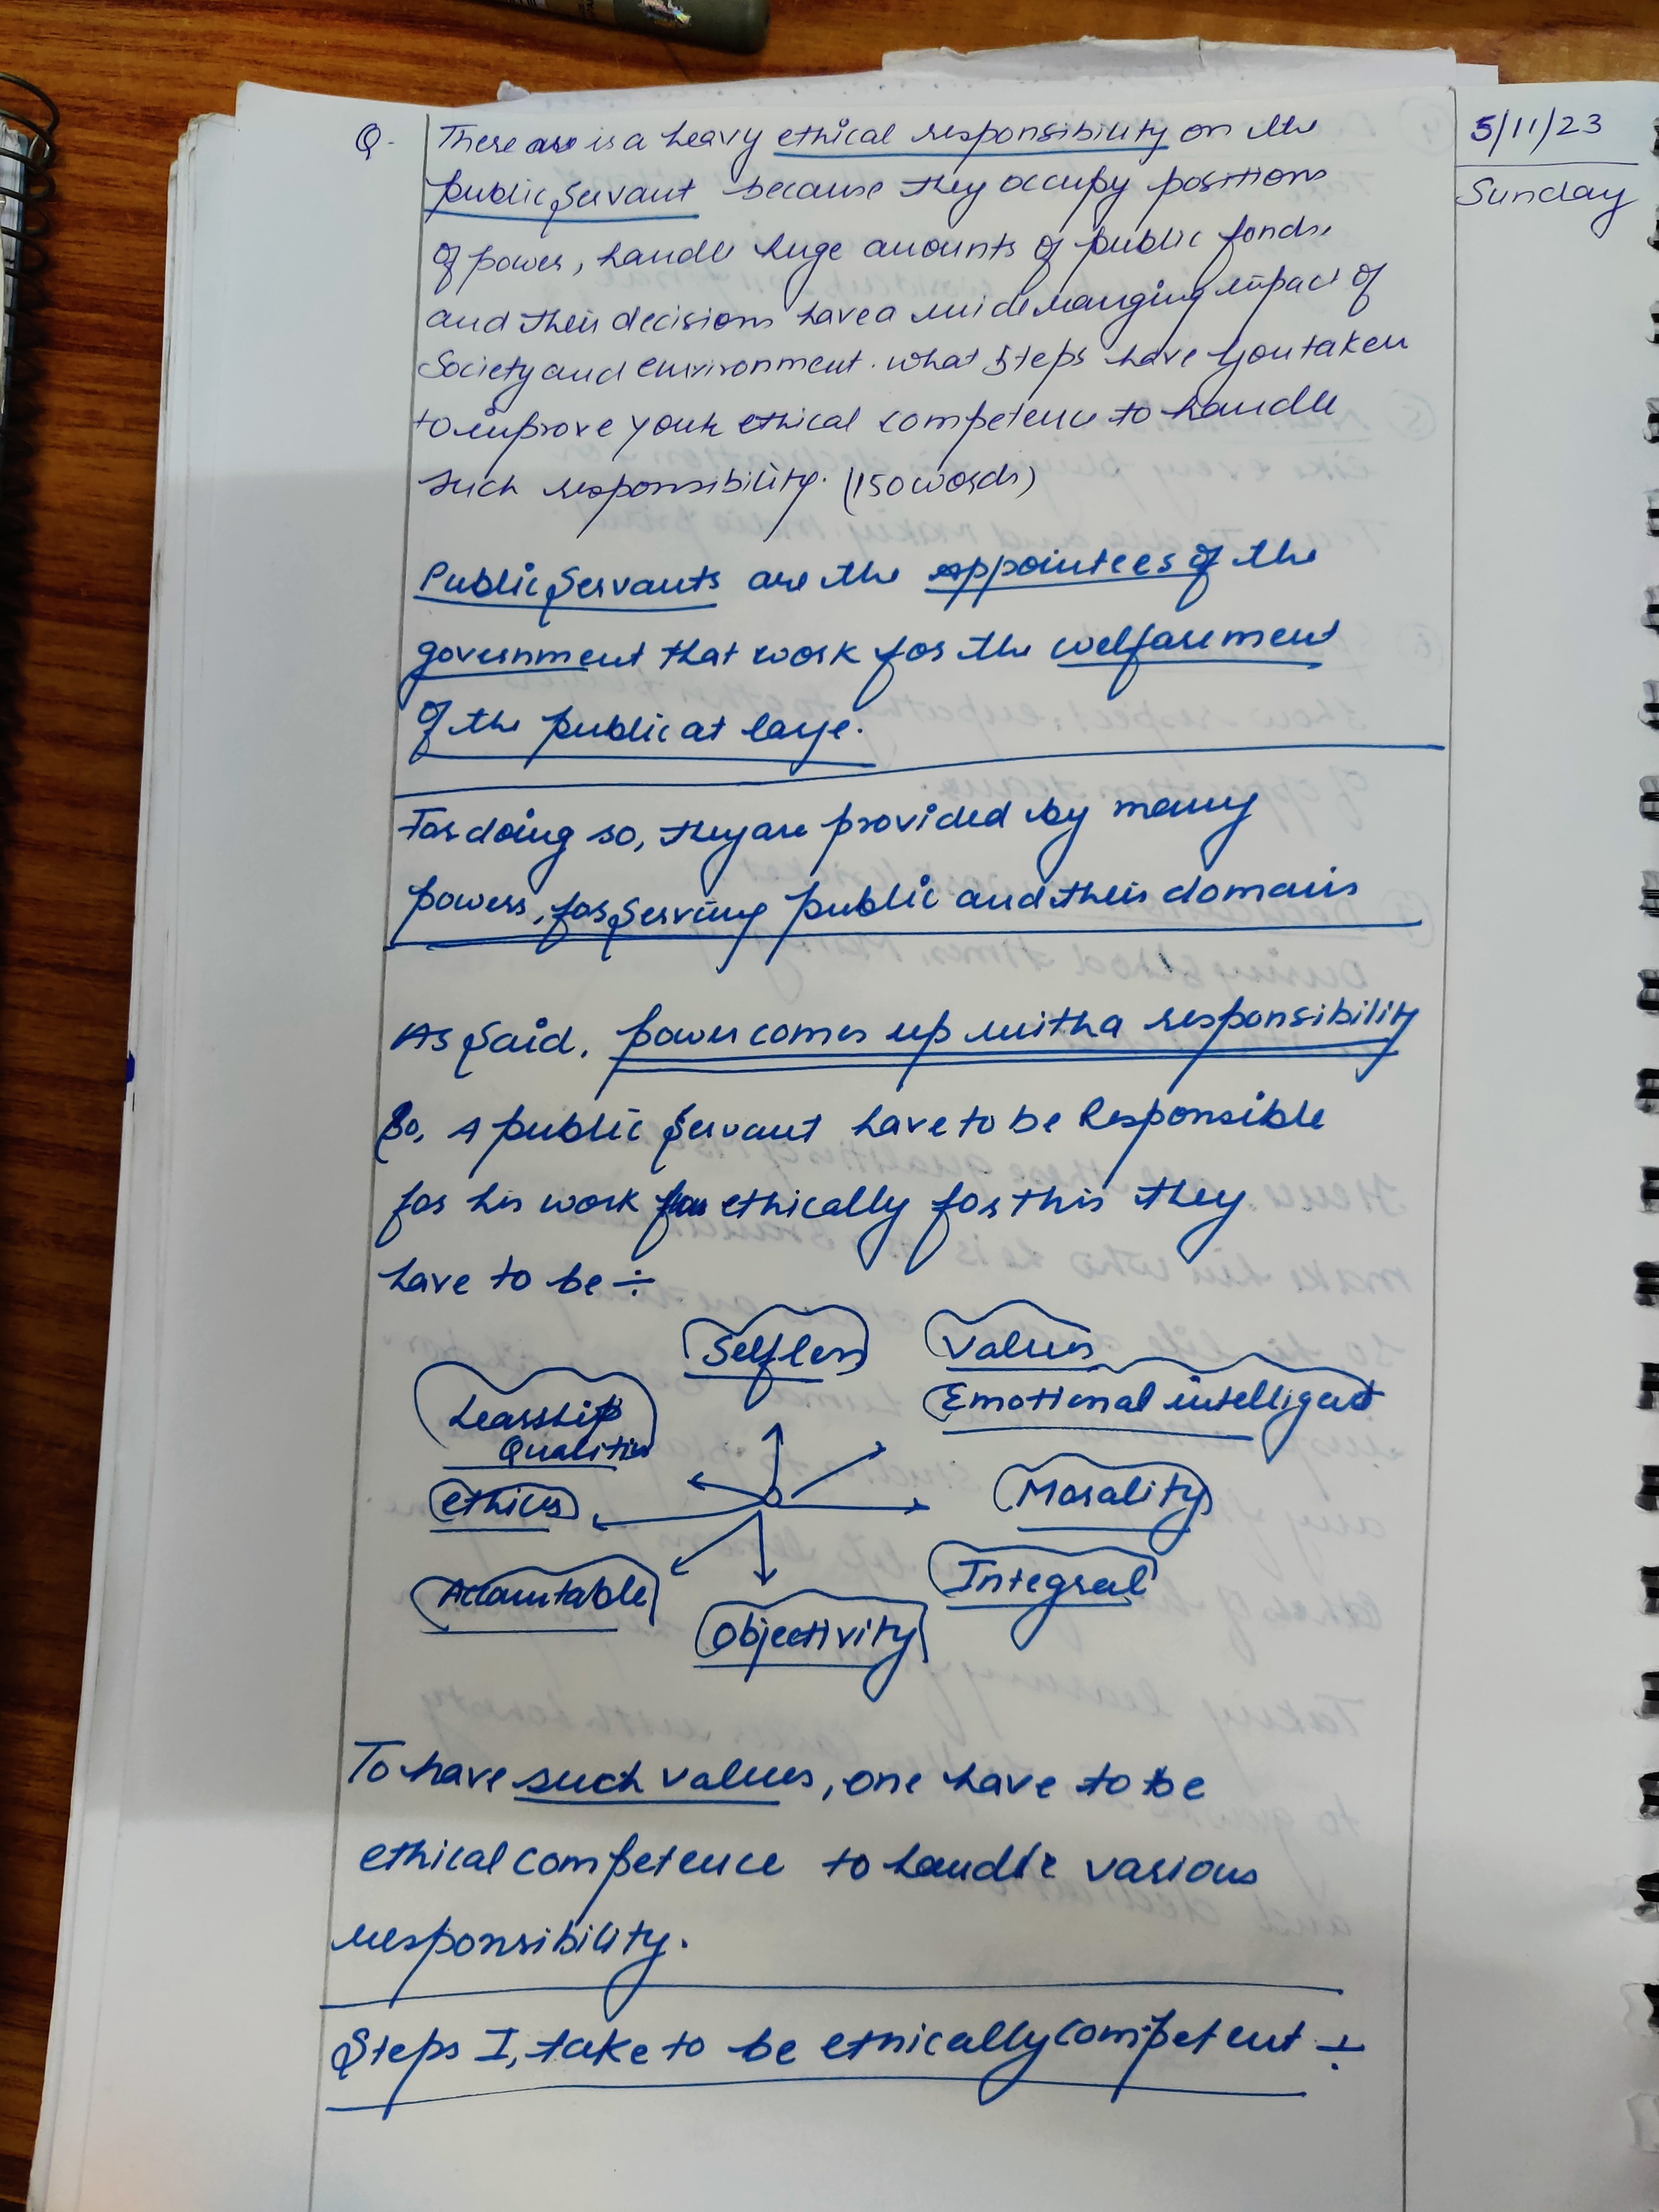 Q- There are is a heavy ethical responsibility on the
public servant because they occupy positions
of power, handle huge amounts of public fonds,
and their decisions have a wide ranging impact of
Society and environment. what steps have you taken
to improve your ethical competence to handle
such responsibility. (150 words)
5/11/23
Sunday
Public Servants are the appointees of the
government that work for the welfarement
of the public at large.
For doing so, they are provided by many
powers, for serving public and their domain
As said, power comes up with a responsibility
So, A public servant have to be Responsible
for his work ethically for this they
have to be ÷
Selfless
Values
Emotional intelligent
Leasship
Qualities
ethics
Morality
Integral
Accountable
Objectivity
To have such values, one have to be
ethical competence to handle various
responsibility.
Steps I, take to be ethically competent ÷